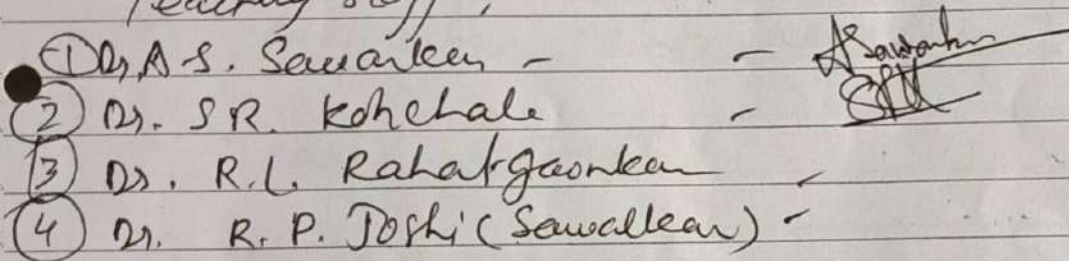 Teaching staff,
① Dr. A S. Sawarkar - - ASawarkar
② Dr. S R. Kohchale -
③ Dr. R.L. Rahatgaonkar -
④ Dr. R. P. Joshi (Sawalkar) -